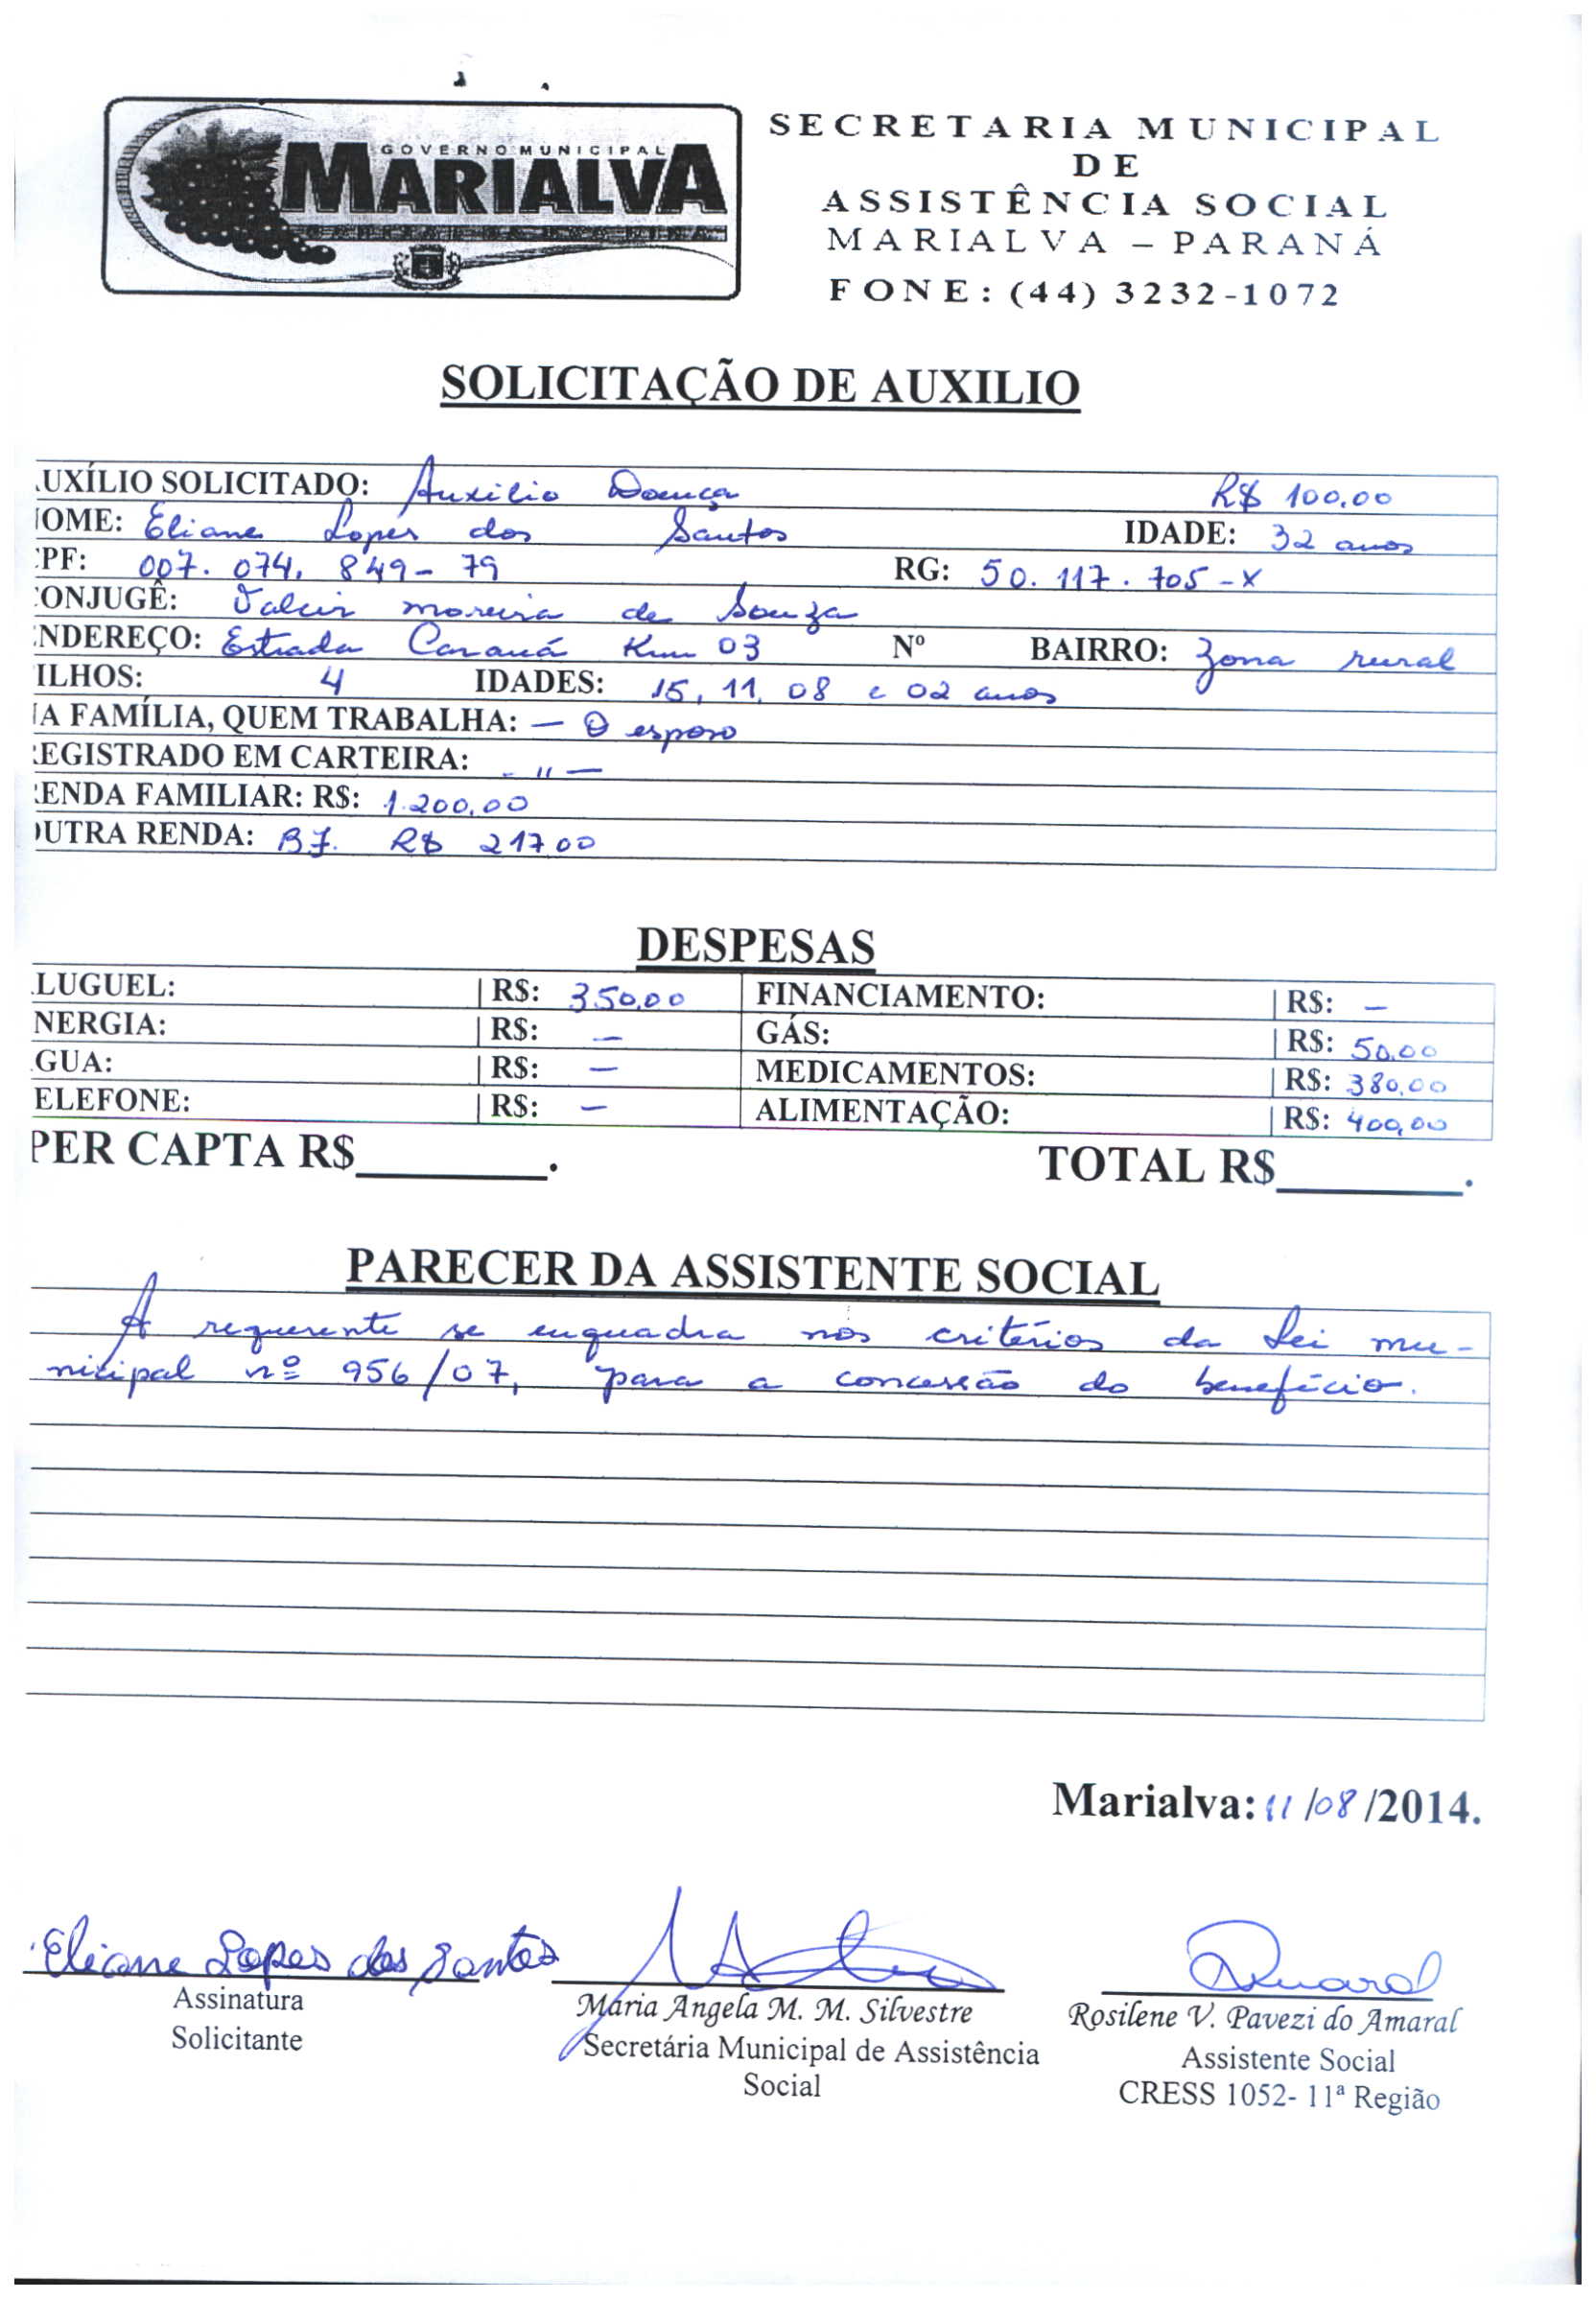 GOVERNO MUNICIPAL
MARIALVA
SECRETARIA MUNICIPAL
DE
ASSISTÊNCIA SOCIAL
MARIALVA – PARANÁ
FONE: (44) 3232-1072
SOLICITAÇÃO DE AUXILIO
UXÍLIO SOLICITADO: Auxilio Doença R$ 100,00
OME: Eliane Lopes dos Santos IDADE: 32 anos
PF: 007.074.849-79 RG: 50.117.705-X
ONJUGÊ: Valcir moreira de Souza
NDEREÇO: Estrada Km 03 Nº BAIRRO: Zona rural
ILHOS: 4 IDADES: 15, 11, 08 e 02 anos
A FAMÍLIA, QUEM TRABALHA: — O esposo
EGISTRADO EM CARTEIRA: - " —
ENDA FAMILIAR: R$: 1.200,00
UTRA RENDA: BF. R$ 217,00
DESPESAS
LUGUEL: R$: 350,00 FINANCIAMENTO: R$: —
NERGIA: R$: — GÁS: R$: 50,00
GUA: R$: — MEDICAMENTOS: R$: 380,00
ELEFONE: R$: — ALIMENTAÇÃO: R$: 400,00
PER CAPTA R$________. TOTAL R$________.
PARECER DA ASSISTENTE SOCIAL
A requerente se enquadra nos critérios da Lei mu-
nicipal nº 956/07, para a concessão do benefício.
Marialva: 11/08/2014.
Eliane Lopes dos Santos
Assinatura
Solicitante
Maria Angela M. M. Silvestre
Secretária Municipal de Assistência
Social
Amaral
Rosilene V. Pavezi do Amaral
Assistente Social
CRESS 1052- 11ª Região